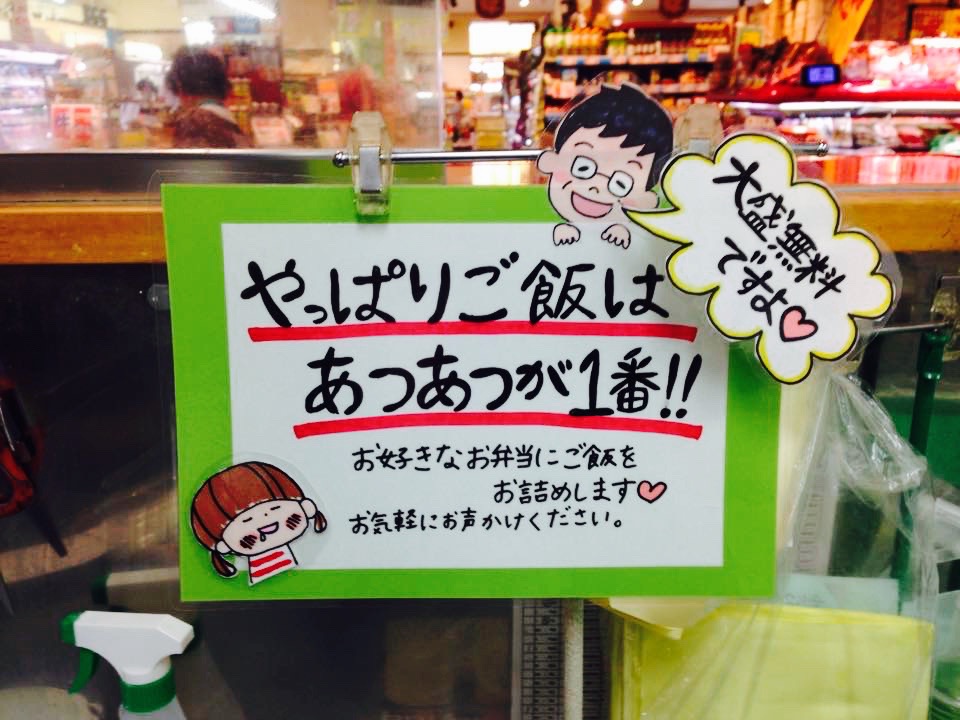 大盛無料
ですよ♡
やっぱりご飯は
あつあつが1番!!
お好きなお弁当にご飯を
お詰めします♡
お気軽にお声かけください。